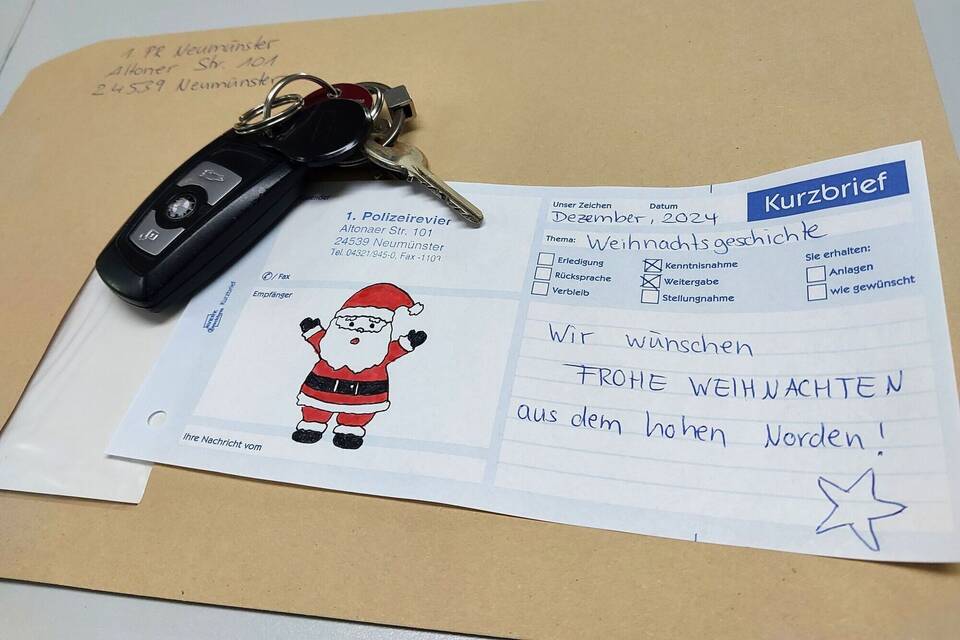 1. PR Neumünster
Altonaer Str. 101
24539 Neumünster
Kurzbrief
1. Polizeirevier
Altonaer Str. 101
24539 Neumünster
Tel. 04321/945-0, Fax -1103
✆/Fax
Empfänger
Ihre Nachricht vom
Unser Zeichen Datum
Dezember, 2024
Thema: Weihnachtsgeschichte
Erledigung
Rücksprache
Verbleib
Kenntnisnahme
Weitergabe
Stellungnahme
Sie erhalten:
Anlagen
wie gewünscht
Wir wünschen
FROHE WEIHNACHTEN
aus dem hohen Norden!
Kurzbrief